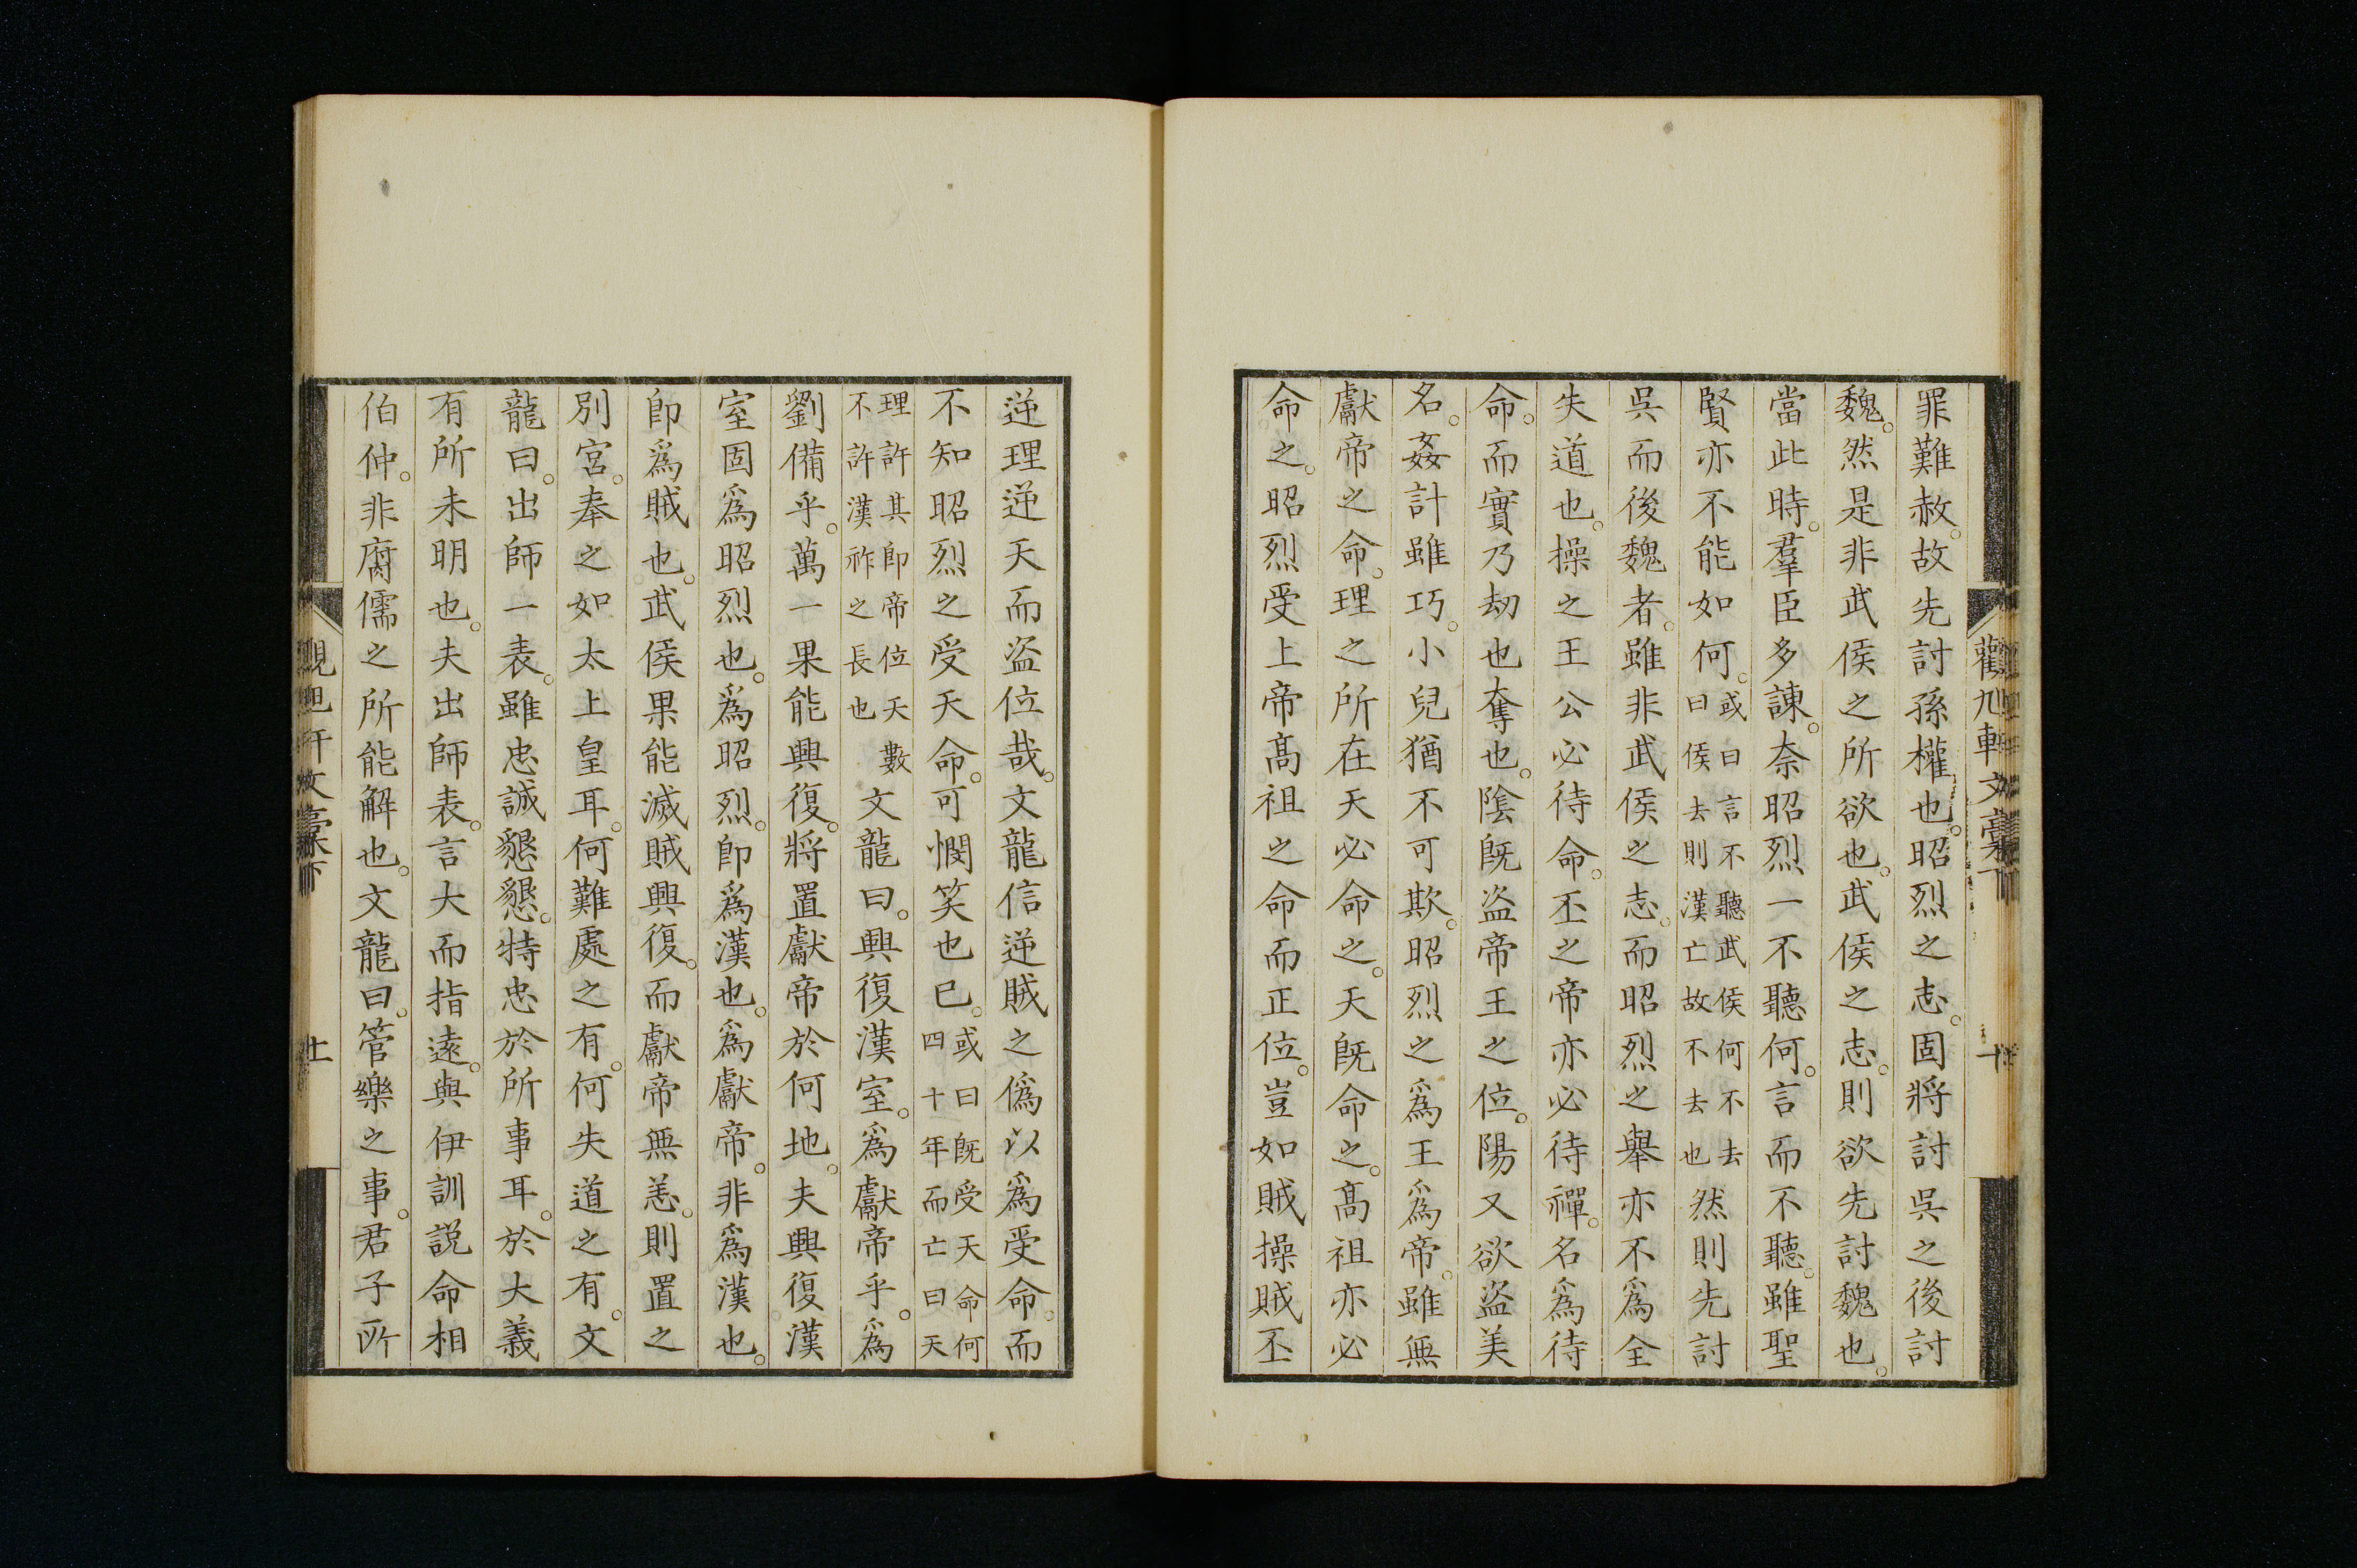 罪難赦。故先討孫權也。昭烈之志。固將討吳之後討
魏。然是非武侯之所欲也。武侯之志。則欲先討魏也。
當此時。羣臣多諫。奈昭烈一不聽何。言而不聽。雖聖
賢亦不能如何。或曰言不聽武侯何不去曰侯去則漢亡故不去也然則先討
吳而後魏者。雖非武侯之志。而昭烈之舉亦不爲全
失道也。操之王公必待命。丕之帝亦必待禪。名爲待
命。而實乃劫也奪也。陰旣盜帝王之位。陽又欲盜美
名。姦計雖巧。小兒猶不可欺。昭烈之爲王爲帝。雖無
獻帝之命。理之所在天必命之。天旣命之。高祖亦必
命之。昭烈受上帝高祖之命而正位。豈如賊操賊丕
逆理逆天而盜位哉。文龍信逆賊之僞以爲受命。而
不知昭烈之受天命。可憫笑也已。或曰旣受天命何四十年而亡曰天
理許其卽帝位天數不許漢祚之長也文龍曰。興復漢室。爲獻帝乎。爲
劉備乎。萬一果能興復。將置獻帝於何地。夫興復漢
室固爲昭烈也。爲昭烈。卽爲漢也。爲獻帝。非爲漢也。
卽爲賊也。武侯果能滅賊興復。而獻帝無恙。則置之
別宮。奉之如太上皇耳。何難處之有。何失道之有。文
龍曰。出師一表。雖忠誠懇懇。特忠於所事耳。於大義
有所未明也。夫出師表。言大而指遠。與伊訓說命相
伯仲。非腐儒之所能解也。文龍曰。管樂之事。君子所